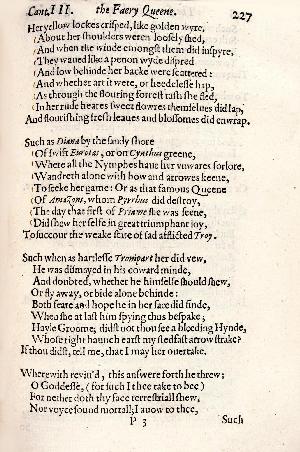 Cant. III. the Faery Queene. 227
Her yellow lockes crisped, like golden wyre,
About her shoulders weren loosely shed,
And when the winde emongst them did inspyre,
They waued like a penon wyde dispred
And low behinde her backe were scattered:
And whether art it were, or heedelesse hap,
As through the flouring forrest rash she fled,
In her rude heares sweet flowres themselues did lap,
And flourishing fresh leaues and blossomes did enwrap.
Such as Diana by the sandy shore
Of swift Eurotas, or on Cynthus greene,
Where all the Nymphes haue her vnwares forlore,
Wandreth alone with bow and arrowes keene,
To seeke her game: Or as that famous Queene
Of Amazons, whom Pyrrhus did destroy,
The day that first of Priame she was seene,
Did shew her selfe in great triumphant ioy,
To succour the weake state of sad afflicted Troy.
Such when as hartlesse Trompart her did vew,
He was dismayed in his coward minde,
And doubted, whether he himselfe should shew,
Or fly away, or bide alone behinde:
Both feare and hope he in her face did finde,
When she at last him spying thus bespake;
Hayle Groome; didst not thou see a bleeding Hynde,
Whose right haunch earst my stedfast arrow strake?
If thou didst, tell me, that I may her ouertake.
Wherewith reviu'd, this answere forth he threw;
O Goddesse, (for such I thee take to bee)
For nether doth thy face terrestriall shew,
Nor voyce sound mortall; I auow to thee,
P 3 Such